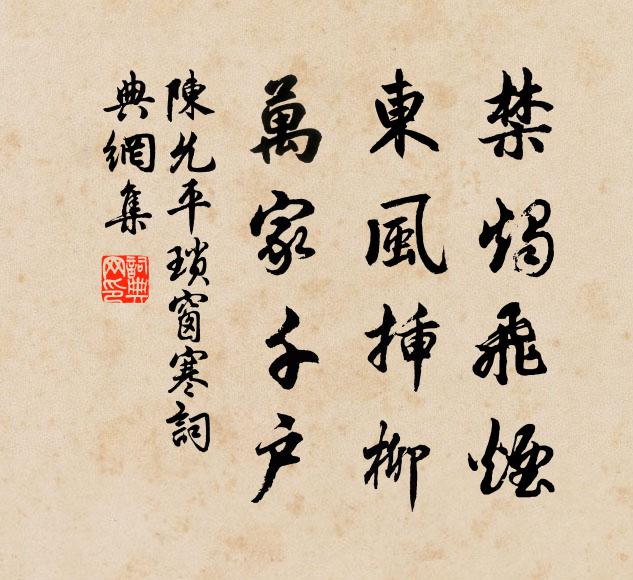 禁燭飛煙
東風揷柳
萬家千戶
陳允平瑣窗寒詞
典網集
詞典網印